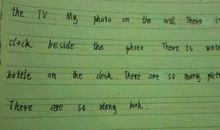 the TV. My photo on the wall. There is
clock beside the photo. There is wate
bottle on the desk. There are so many pict
There are so many book.